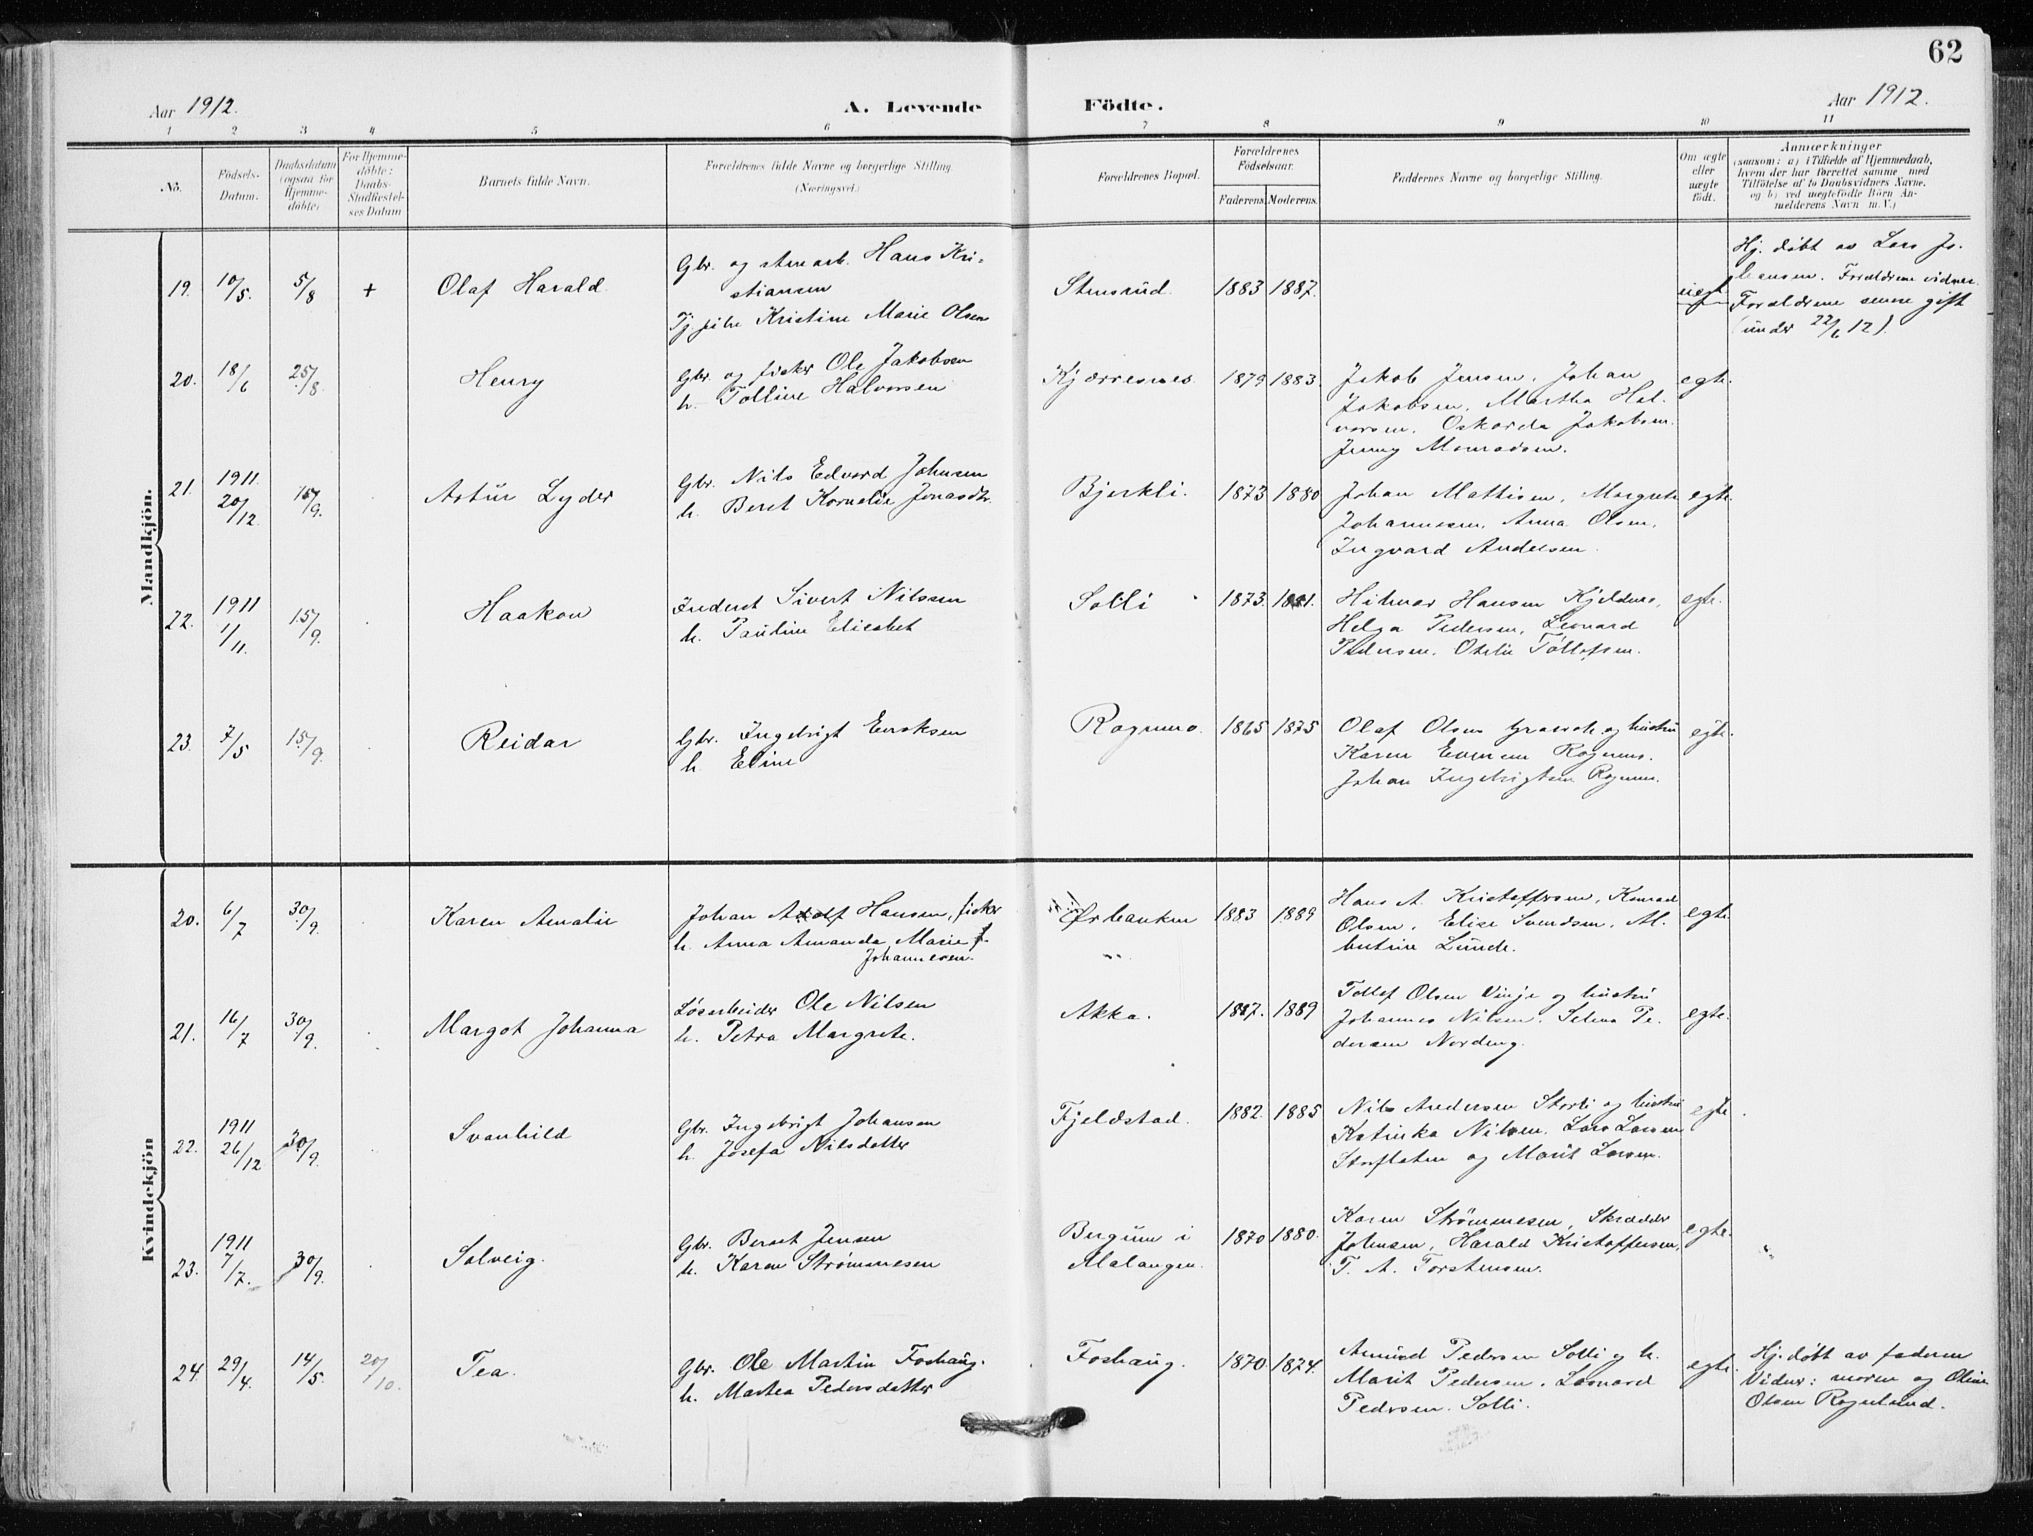 62
Aar 1912.
A. Levende Födte.
Aar 1912.
1 2 3 4 5 6 7 8 9 10 11
No.
Födsels-
Datum.
Daabsdatum
(ogsaa for
Hjemme-
döbte)
For Hjemme-
döbte:
Daabs-
Stadfæstel-
ses Datum
Barnets fulde Navn.
Forældrenes fulde Navne og borgerlige Stilling.
(Næringsvei.)
Forældrenes Bopæl.
Forældrenes
Födselsaar.
Faderens. Moderens.
Faddernes Navne og borgerlige Stilling.
Om ægte
eller
uægte
födt.
Anmærkninger
(saasom: a) i Tilfælde af Hjemmedaab,
hvem der har forrettet samme, med
Tilföielse af to Daabsvidners Navne.
og b) ved uægtefödte Börn An-
melderens Navn m. V.)
Mandkjön.
19. 10/5. 5/8 + Olaf Harald.
Gbr. og Hans Kri-
stiansen
Kristine Marie Olsen
Stensrud. 1883 1887. uegt.
Hj. døbt av Lars Jo-
hansen. Forældrene vidner.
Forældrene senere gift
(under 22/6 12).
20. 18/6 25/8. Henry
Gbr. og fisker Ole Jakobsen
h. Tolline Halvorsen
Kjærresnes. 1879 1883. egte.
Jakob Jensen, Johan
Jakobsen, Martha Hal-
vorsen, Oskarda Jakobsen.
Jenny Monradsen.
21. 1911 20/12. 15/9. Artur Lyder
Gbr. Nils Edvard Johnsen
h. Beret Kornelie Jonasdtr.
Bjerkli. 1873 1880 egte.
Johan Mattisen, Margrete
Johannesen, Anna Olsen,
Ingvard Andersen.
22. 1911 1/11. 15/9. Haakon
Inderst Sivert Nilssen
h. Pauline Elisabet
Solli 1873. 1881. egte.
Hilmar Hansen Kjeldnes,
Helga Pedersen, Leonard
Pedersen. Otelie Tollefsen.
23. 7/5 15/9. Reidar
Gbr. Ingebrigt Eriksen
h. Eline
Rognmo. 1865 1875 egte.
Olaf Olsen og hustru
Karen Evensen Rognmo.
Johan Ingebrigtsen Rognmo.
Kvindekjön
20. 6/7 30/9. Karen Amalie
Johan Adolf Hansen, fisker
h. Anna Amanda Marie
Johannesen.
Ørbanken 1883 1889 egte.
Hans A. Kristoffersen, Konrad
Olsen, Elise Svendsen, Al-
bertine Lunde.
21. 16/7 30/9. Margot Johanna
Løsarbeider Ole Nilsen
h. Petra Margrete.
Akka. 1887. 1889 egte.
Tollef Olsen Vinje og hustru
Johannes Nilsen. Selma Pe-
dersen Nordeng.
22. 1911 26/12 30/9. Svanhild
Gbr. Ingebrigt Johansen
h. Josefa Nilsdatter
Fjeldstad. 1882. 1885 egte
Nils Andersen Storli og hustru
Katinka Nilsen, Lars Larsen
Storflaten og Marit Larsen.
23. 1911 7/7. 30/9. Solveig.
Gbr. Berset Jensen
h. Karen Strømmesen
Bergum i
Malangen. 1870 1880. egte.
Karen Strømmesen, Skrædder
Johnsen, Harald Kristoffersen,
T. A. Torstensen.
24. 29/4. 14/5 20/10. Tea.
Gbr. Ole Martin Foshaug.
h. Martea Pedersdatter
Foshaug. 1870. 1874. egte.
Amund Pedersen Solli og h.
Marit Pedersen, Leonard
Pedersen. Solli.
Hj. døbt av faderen
Vidner: moren og Oline
Olsen Rognlund.